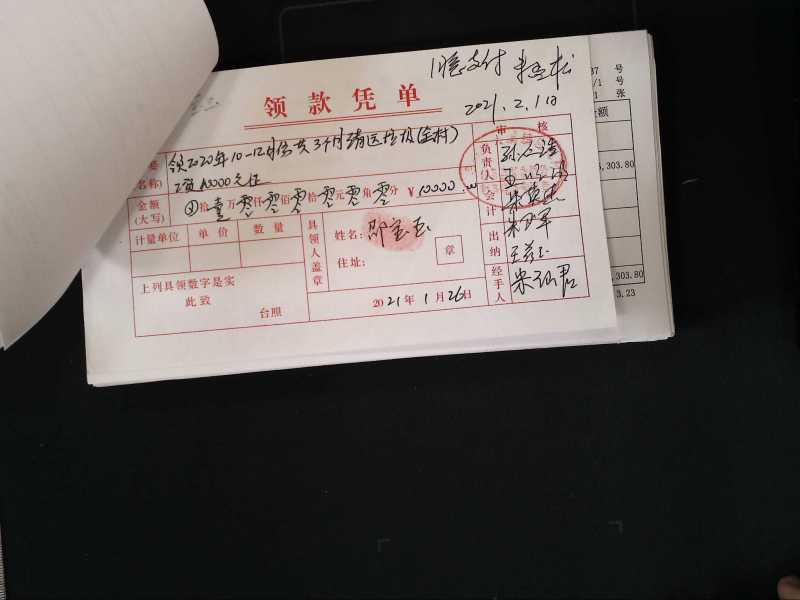 同意支付
2021.2.1日
领款凭单
审核
领2020年10-12月份共3个月清运垃圾(全村)
工资10000元正
名称)
金额
(大写)
拾壹万零仟零佰零拾零元零角零分 ¥10000.00
计量单位 单价 数量
具领人盖章
姓名:邵宝玉
住址:
章
上列具领数字是实
此致
台照
2021年1月26日
负责人
会计
出纳
经手人
号
号
张
金额
,303.80
,303.80
3.23